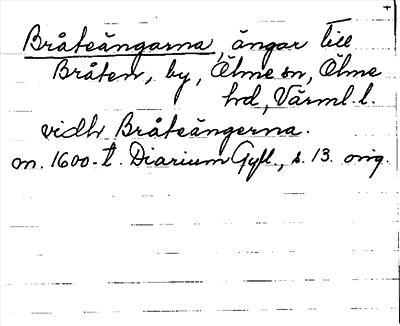 Bråteängarna, ängar till
Bråten, by, Ölme sn, Ölme
hd, Värml. l.
vidh Bråteängerna.
m. 1600-t. Diarium Gyll., s. 13. orig.